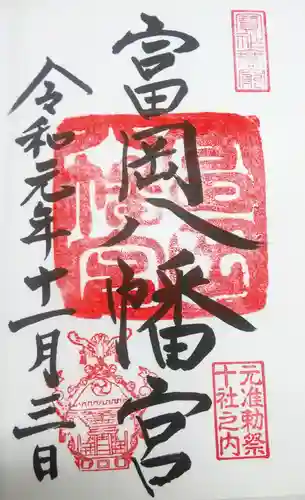 富岡八幡宮
元准勅祭
十社之内
令和元年十一月三日